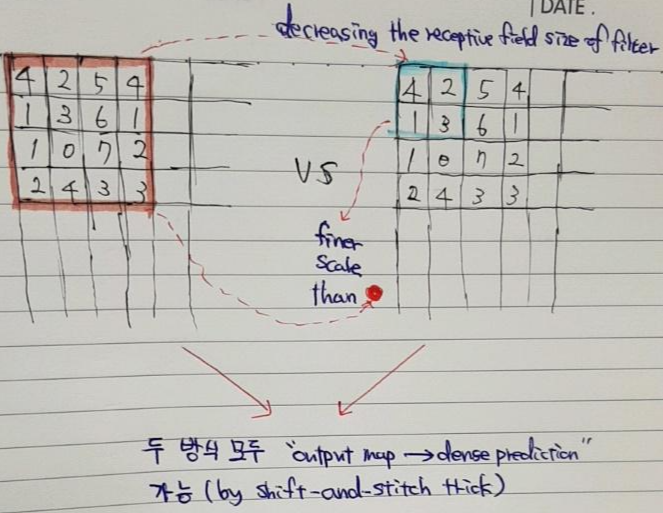 DATE.
decreasing the receptive field size of filter
4 2 5 4
1 3 6 1
1 0 7 2
2 4 3 3
VS
4 2 5 4
1 3 6 1
1 0 7 2
2 4 3 3
finer
scale
than
두 방식 모두 "output map → dense prediction"
가능 (by shift-and-stitch trick)